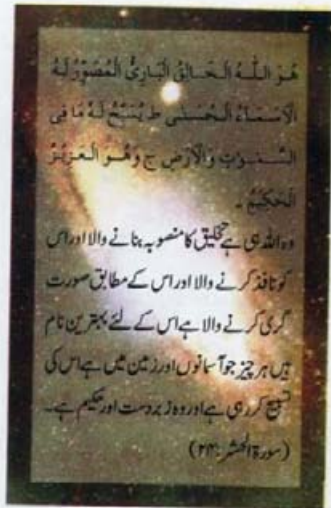 هُوَ اللّٰهُ الْخَالِقُ الْبَارِئُ الْمُصَوِّرُ لَهُ
الْاَسْمَاءُ الْحُسْنٰى ط يُسَبِّحُ لَهٗ مَا فِى
السَّمٰوٰتِ وَالْاَرْضِ ج وَهُوَ الْعَزِيْزُ
الْحَكِيْمُ ۔
وہ اللہ ہی ہے تخلیق کا منصوبہ بنانے والا اور اس
کو نافذ کرنے والا اور اس کے مطابق صورت
گری کرنے والا ہے اس کے لئے بہترین نام
ہیں ہر چیز جو آسمانوں اور زمین میں ہے اس کی
تسبیح کر رہی ہے اور وہ زبردست اور حکیم ہے۔
(سورۃ الحشر:۲۴)